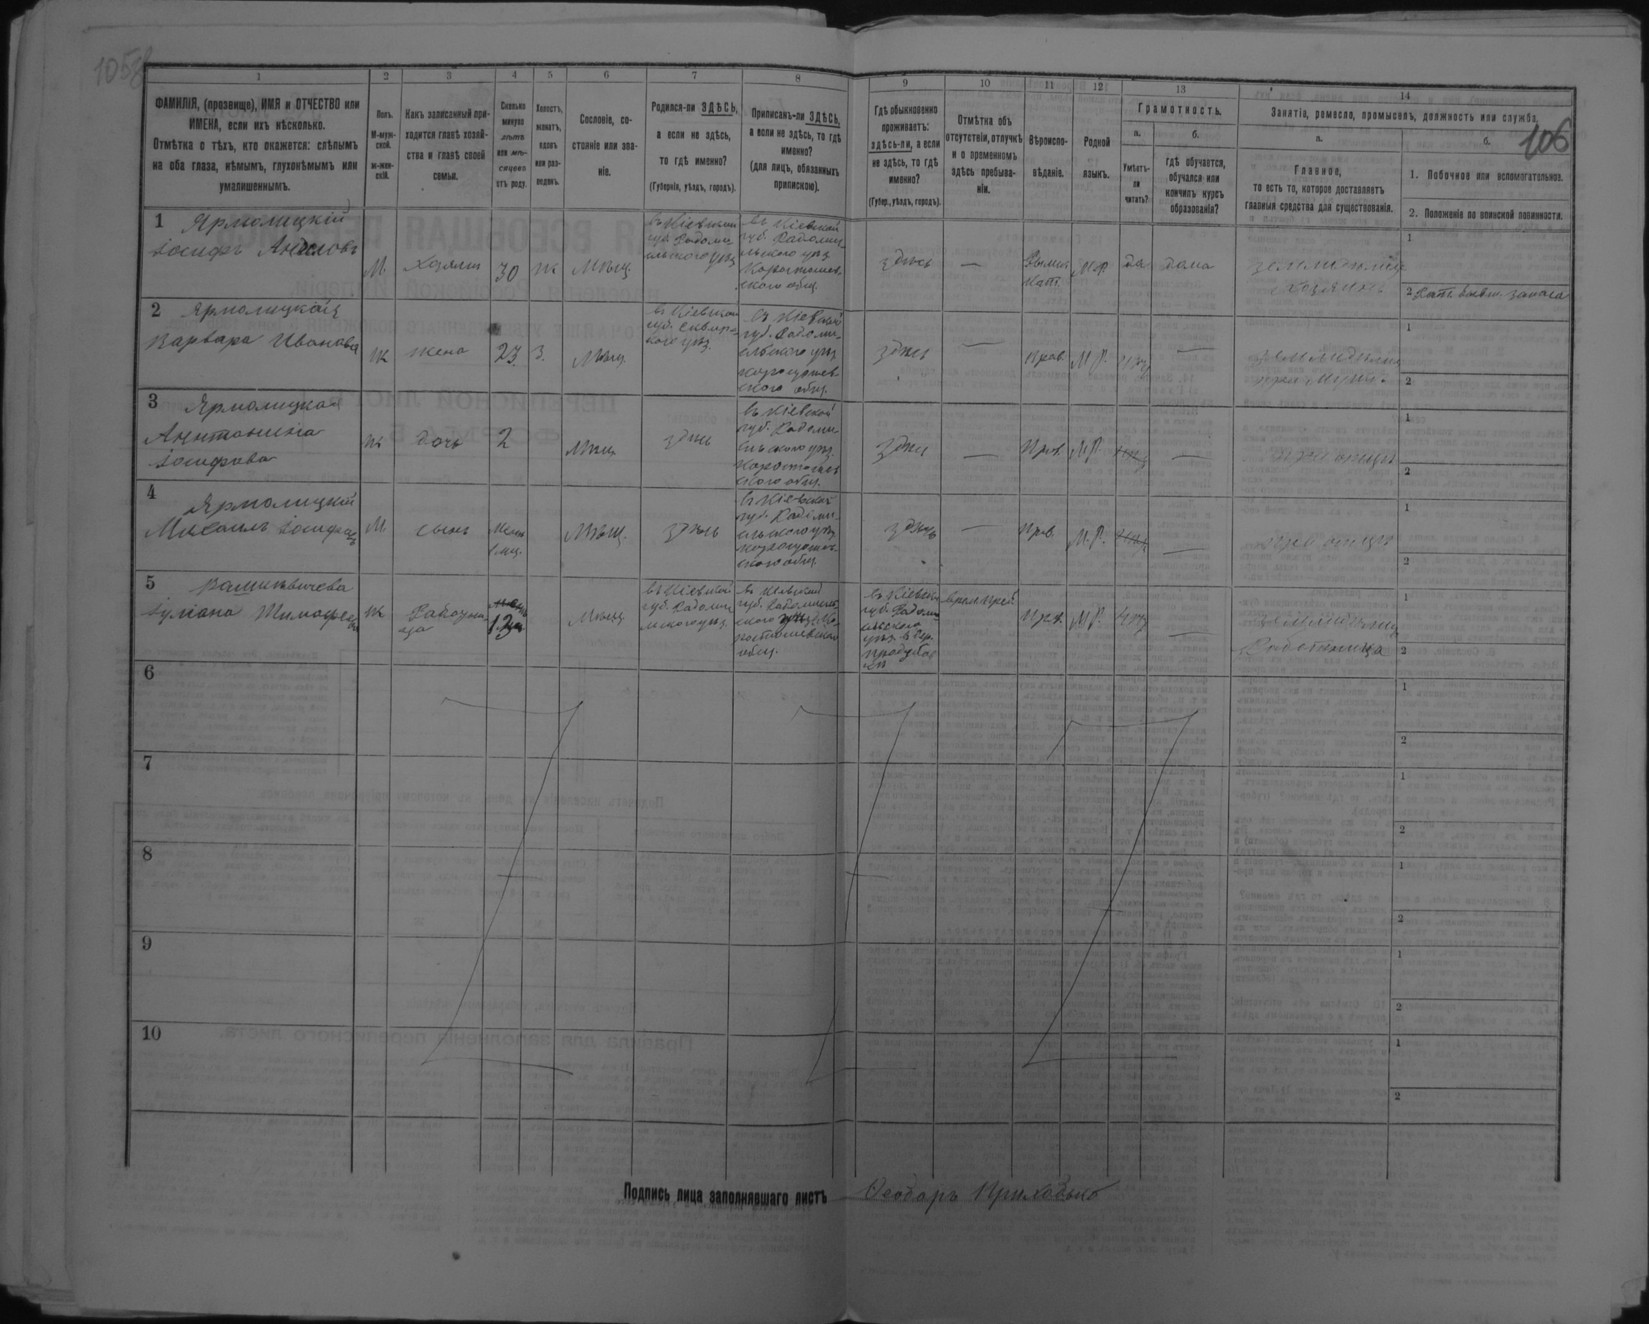 1058
106
1 2 3 4 5 6 7 8 9 10 11 12 13 14
ФАМИЛІЯ, (прозвище), ИМЯ и ОТЧЕСТВО или
ИМЕНА, если ихъ нѣсколько.
Отмѣтка о тѣхъ, кто окажется: слѣпымъ
на оба глаза, нѣмымъ, глухонѣмымъ или
умалишеннымъ.
Полъ.
М-муж-
ской.
ж-жен-
скій.
Какъ записанный при-
ходится главѣ хозяй-
ства и главѣ своей
семьи.
Сколько
минуло
лѣтъ
или мѣ-
сяцевъ
отъ роду.
Холостъ,
женатъ,
вдовъ
или раз-
веденъ.
Сословіе, со-
стояніе или зва-
ніе.
Родился-ли ЗДѢСЬ,
а если не здѣсь,
то гдѣ именно?
(Губернія, уѣздъ, городъ).
Приписанъ-ли ЗДѢСЬ,
а если не здѣсь, то гдѣ
именно?
(для лицъ, обязанныхъ
припискою).
Гдѣ обыкновенно
проживаетъ:
здѣсь-ли, а если
не здѣсь, то гдѣ
именно?
(Губер., уѣздъ, городъ).
Отмѣтка объ
отсутствіи, отлучкѣ
и о временномъ
здѣсь пребыва-
ніи.
Вѣроиспо-
вѣданіе.
Родной
языкъ.
Грамотность.
а.
Умѣетъ-
ли
читать?
б.
гдѣ обучается,
обучался или
кончилъ курсъ
образованія?
Занятіе, ремесло, промыселъ, должность или служба.
а.
Главное,
то есть то, которое доставляетъ
главныя средства для существованія.
б.
1. Побочное или вспомогательное.
2. Положеніе по воинской повинности.
1 Ярмолицкій
Іосифъ
М. хозяинъ 30 ж Мѣщ.
въ Кіевской
губ. Радомы
сльского уѣз
въ Кіевской
губ. Радомы
сльского уѣз
Коростышев
ского общ.
здѣсь — Римск
Кат. М.Р. да дома
земледѣлія
хозяинъ
1
2 запаса
2 Ярмолицкая
Варвара Иванова
ж жена 23 з. Мѣщ.
въ Кіевской
губ. Сквирс
кого уѣз.
въ Кіевской
губ. Радомы
сльского уѣз
коростышев
ского общ.
здѣсь — Прав. М.Р. нѣт —
земледѣлія
при мужѣ
1
2
3 Ярмолицкая
Антонина
Іосифова
ж дочь 2 Мѣщ. здѣсь
въ Кіевской
губ. Радомы
сльского уѣз.
коростышев
ского общ.
здѣсь — Прав. М.Р. нѣт —
при отцѣ
1
2
4 Ярмолицкій
Михаилъ Іосифов
М. сынъ Менѣ
1 мц. Мѣщ. здѣсь
въ Кіевской
губ. Радомы
сльского уѣз
коростышев
ского общ.
здѣсь — Прав. М.Р. нѣт —
при отцѣ
1
2
5
Тимофеева
ж Работни
ца 13 Мѣщ.
въ Кіевской
губ. Радомы
сльского уѣз.
въ Кіевской
губ. Радомысль
ского уѣз. Ко
ростышевского
общ.
въ Кіевской
губ. Радомы
сльского
уѣз.
врем. преб. Прав. М.Р. нѣт —
Работница
1
2
6
1
2
7
1
2
8
1
2
9
1
2
10
1
2
Подпись лица заполнявшаго листъ Ѳеодоръ Приходько